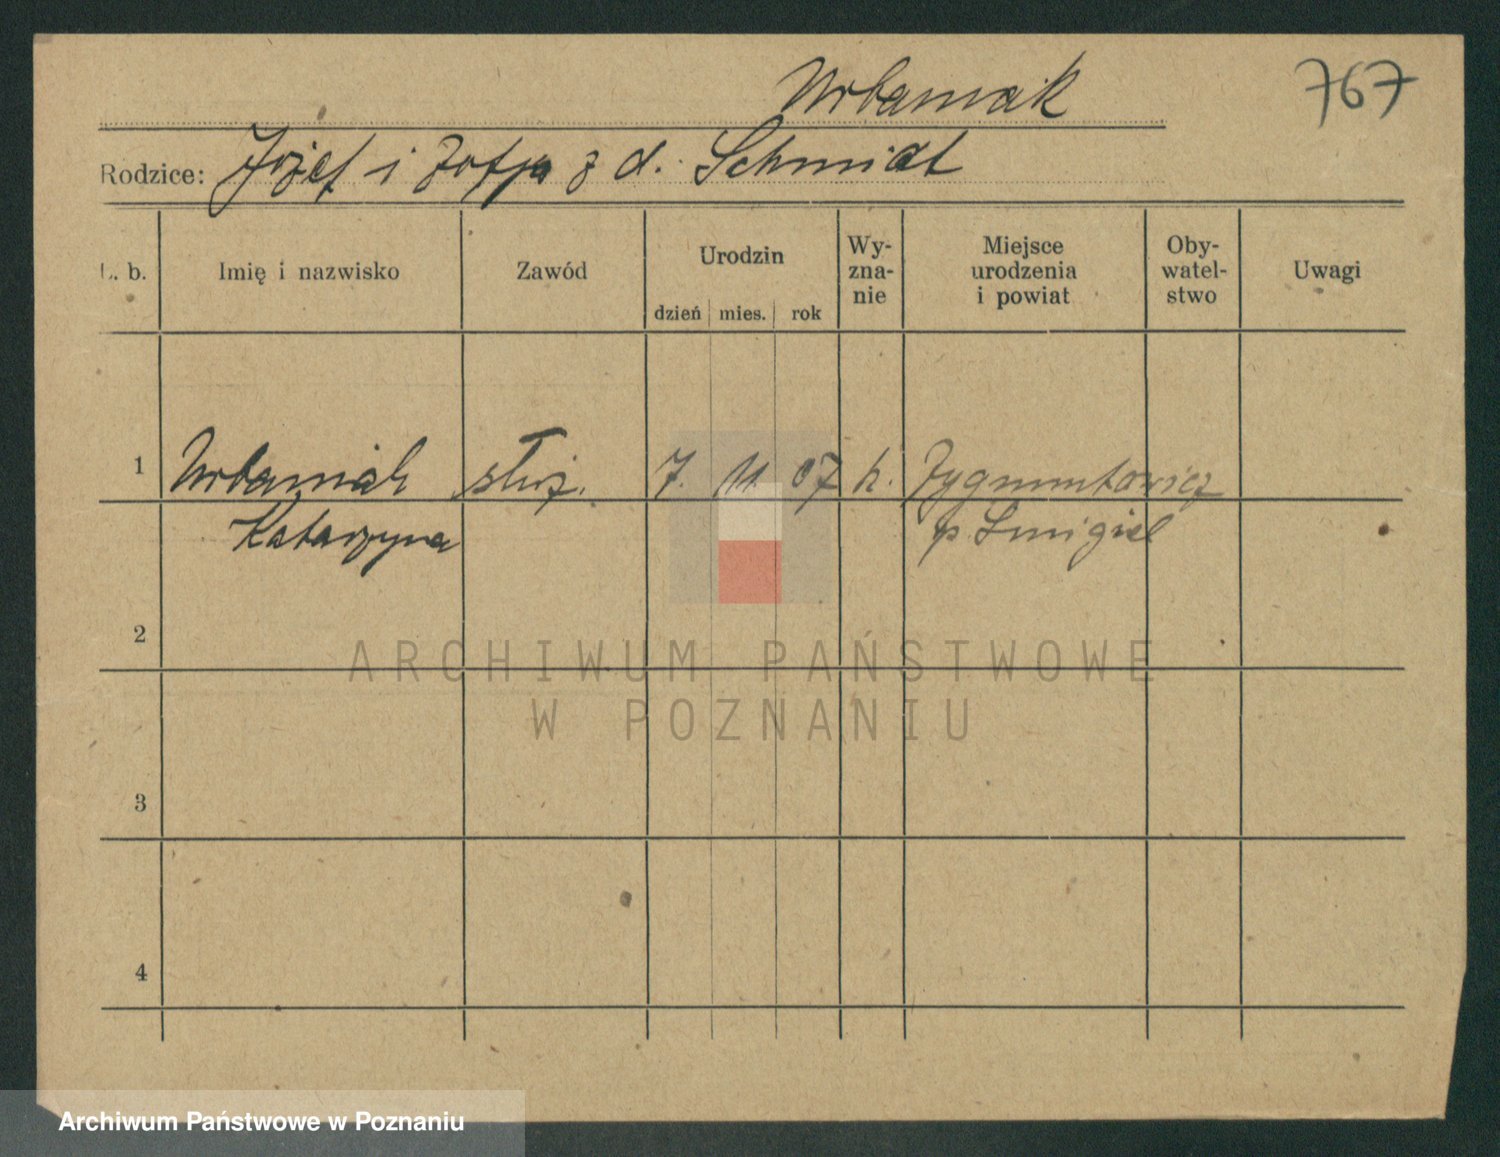 Urbaniak 767
Rodzice: Józef i Zofja z d. Schmidt
L. b. Imię i nazwisko Zawód Urodzin dzień mies. rok Wy-zna-nie Miejsce urodzenia i powiat Oby-watel-stwo Uwagi
1 Urbaniak służ. 7. 11. 07 k. Zygmuntowicz
Katarzyna p. Śmigiel
2
ARCHIWUM PAŃSTWOWE
W POZNANIU
3
4
Archiwum Państwowe w Poznaniu